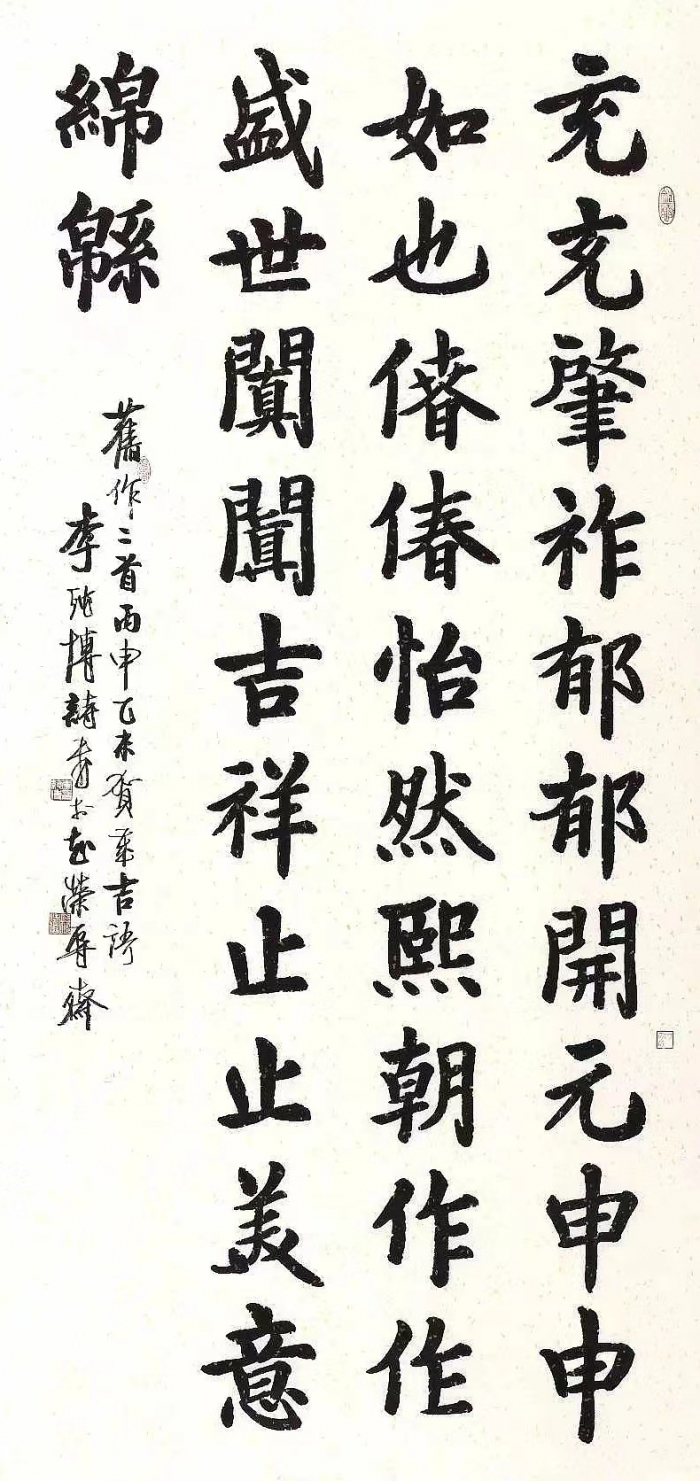 充充肇祚郁郁開元申申
如也偆偆怡然熙朝作作
盛世闐闐吉祥止止美意
綿緜
舊作二首丙申乙未賀歲吉語
李博詩書於榮辱齋